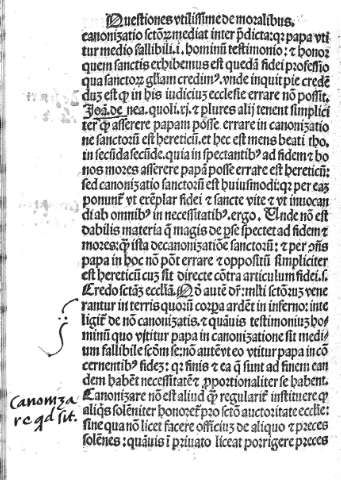 Questiones vtilissime de moralibus.
canoniȝatio sctōꝝ mediat inter p̄dicta: qꝛ papa vti
tur medio fallibili .i. hominū testimonio: ⁊ honor
quem sanctis exhibemus est quedā fidei ꝓfessio
qua sanctoꝝ gl̄iam credimꝰ. vnde inquit pie credē
duȝ est ꝙ in his iudiciuȝ ecclesie errare nō possit.
Joā. de nea. quoli. ꝟj. ⁊ plures alij tenent simplici
ter ꝙ asserere papam posse errare in canoniȝatio
ne sanctorū est hereticū. et hec est mens beati tho.
in secūda secūde. quia in spectantibꝰ ad fidem ⁊ bo
nos mores asserere papā posse errare est hereticū:
sed canoniȝatio sanctorū est huiusmodi: qꝛ per eaȝ
ponunt̄ vt exēplar fidei ⁊ sancte vite ⁊ vt inuocan
di ab omnibꝰ in necessitatibꝰ. ergo. Unde nō est
dabilis materia q̄ magis de ꝑse spectet ad fidem ⁊
mores: ꝙ̄ ista de canoniȝatione sanctorū: ⁊ per ꝯn̄s
papa in hoc nō pōt errare ⁊ oppositū simpliciter
est hereticū cuȝ sit directe cōtra articulum fidei .s.
Credo sctāȝ eccl̄iā. Nō autē dr̄: ml̄ti sctōruȝ vene
rantur in terris quorū corp̄a ardēt in inferno: inte
ligit̄ de nō canoniȝatis. ⁊ quāuis testimoniuȝ ho⸗
minū quo vtitur papa in canoniȝatione sit medi⸗
um fallibile scd̄m se: nō autē vt eo vtitur papa in cō
cernentibꝰ fideȝ: qꝛ finis ⁊ ea q̄ sunt ad finem ean
dem habēt necessitatē ⁊ ꝓportionaliter se habent.
Canoniȝare nō est aliud ꝙ̄ regularit̄ instituere ꝙ
aliq̄s solēniter honoret̄ ꝓ sctō auctoritate eccl̄ie:
sine qua nō licet facere officiuȝ de aliquo ⁊ preces
solēnes: quāuis ī priuato liceat porrigere preces
Canoniza
re qd sit.